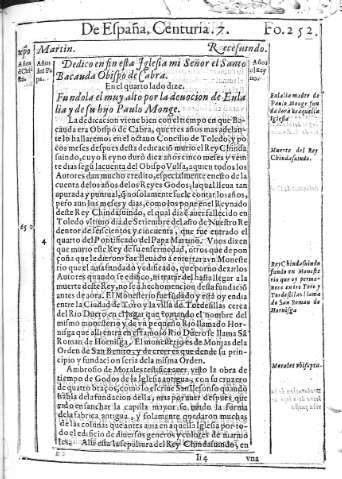 De España, Centuria. 7.
Fo. 252
xp̃o
Martin.
Recesuindo.
Dedico en fin esta Iglesia mi Señor el Santo
Bacauda Obispo de Cabra.
En el quarto lado dize.
Fundola el muy alto por la deuocion de Eula
lia y de su hijo Paulo Monge.
La dedicacion viene bien con el tiempo en que Ba-
cauda era Obispo de Cabra, que tres años mas adelan-
te lo hallaremos en el octauo Concilio de Toledo, y po
cos meses despues desta dedicacion murio el Rey Chinda
suindo, cuyo Reyno duró diez años cinco meses y vein
te dias segũ la cuenta del Obispo Vulsa, a quien todos los
Autores dan mucho credito, especialmente en esto de la
cuenta de los años de los Reyes Godos, la qual lleua tan
apurada y puntual, q̃ no solamente suele contar los años,
pero aun los meses y dias, como los pone en el Reynado
deste Rey Chindasuindo, el qual dize auer fallecido en
Toledo vltimo dia de Setiembre del año de Nuestro Re
dentor de seiscientos y cincuenta, que fue entrado el
quarto del Pontificado del Papa Martino. Vnos dizen
que murio este Rey de su enfermedad, otros que de pon
çoña que le dieron fue lleuado a enterrar a vn Moneste
rio que el auia fundado y edificado, que por no dezir los
Autores quando se edificò, ni tratar del hasta llegar a la
muerte deste Rey, no se à hecho mencion de la fundacion
antes de aora. El Monesterio fue fundado y està oy en dia
entre la Ciudad de Toro y la villa de Tordesillas cerca
del Rio Duero en lugar que tomando el nombre del
mismo monesterio y de vn pequeño Rio llamado Hor-
nija que alli entra en el famoso Rio Duero se llama Sã
Roman de Hornisga. El monesterio es de Monjas dela
Orden de San Benito, y de creer es que desde su prin-
cipio y fundacion seria dela misma Orden.
Ambrosio de Morales testifica auer visto la obra de
tiempo de Godos de la Iglesia antigua, con su cruzero
de quatro braços, como lo refiere San Ilefonso quando
habla de la fundacion della, mas por auer despues que
rido ensanchar la capilla mayor se mudo la forma
dela fabrica antigua, y solamente quedaron muchas
de las colunas que antes auia en aquella Iglesia por to-
do el edificio de diuersos generos y colores de marmo
les. Alli esta la sepultura del Rey Chindasuindo, en
Ii 4
vna
650
4
Eulalia madre de
Paulo Monge fun
dadora de aquella
Iglesia
Muerte del Rey
Chindasuindo.
Rey Chindasuindo
funda un Moneste
rio que oy perma-
nece entre Toro y
Tordesillas llama
do San Roman de
Hornisga
Morales obispo